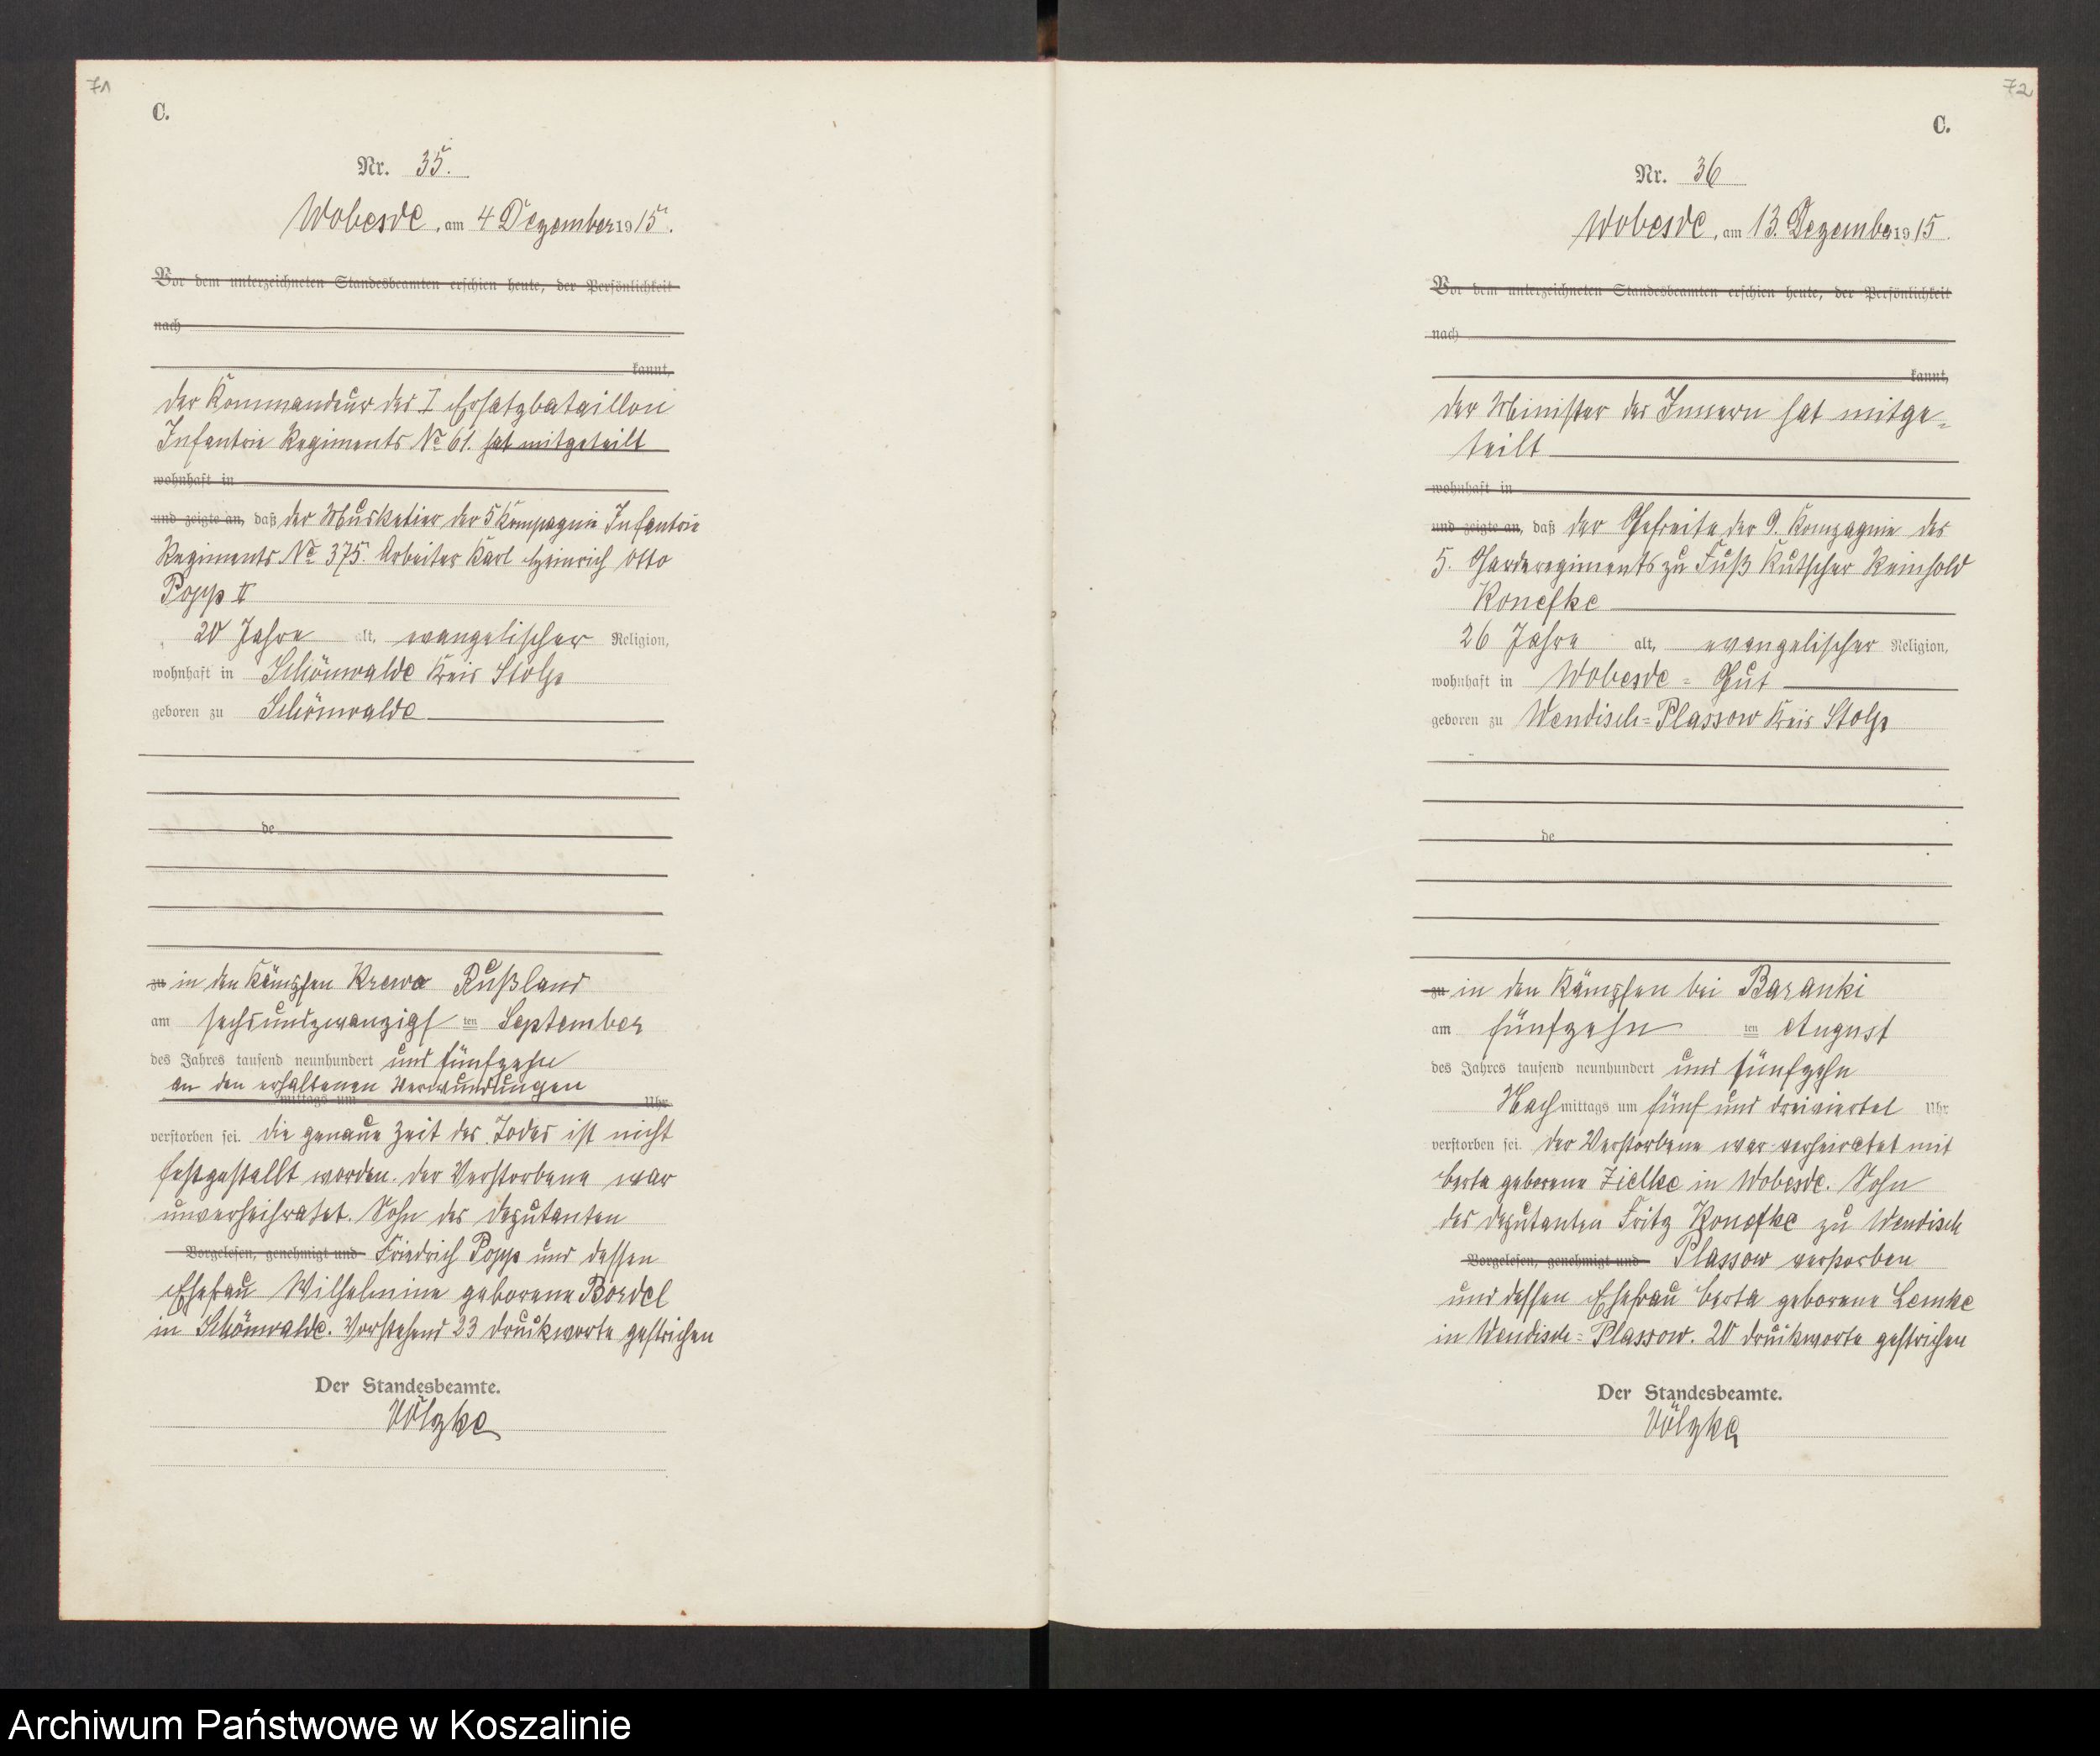 71
C.
Nr. 35.
Wobesde, am 4 Dezember 1915.
Vor dem unterzeichneten Standesbeamten erschien heute, der Persönlichkeit
nach
kannt,
der Kommandeur des I Ersatzbataillon
Infantrie Regiments No 61. hat mitgeteilt
wohnhaft in
und zeigte an, daß der Musketier der 5 Kompagnie Infantrie
Regiments No 375. Arbeiter Karl Heinrich Otto
Popp II
20 Jahre alt, evangelischer Religion,
wohnhaft in Schönwalde Kreis Stolp
geboren zu Schönwalde
de
zu in den Kämpfen Krewo Rußland
am sechsundzwanzigs ten September
des Jahres tausend neunhundert und fünfzehn
an den erhaltenen Verwundungen
mittags um Uhr
verstorben sei. die genaue Zeit des Todes ist nicht
festgestellt worden. der Verstorbene war
unverheihratet. Sohn des Deputanten
Vorgelesen, genehmigt und Friedrich Popp und dessen
Ehefrau Wilhelmine geborene Bordel
in Schönwalde. Vorstehend 23 Druckworte gestrichen
Der Standesbeamte.
Völzke
72
C.
Nr. 36
Wobesde, am 13. Dezember 1915.
Vor dem unterzeichneten Standesbeamten erschien heute, der Persönlichkeit
nach
kannt,
der Minister des Innern hat mitge-
teilt
wohnhaft in
und zeigte an, daß der Gefreite der 9. Kompagnie des
5. Garderegiments zu Fuß Kutscher Reinhold
Konefke
26 Jahre alt, evangelischer Religion,
wohnhaft in Wobesde-Gut
geboren zu Wendisch-Plassow Kreis Stolp
de
zu in den Kämpfen bei Baranki
am fünfzehn ten August
des Jahres tausend neunhundert und fünfzehn
Nach mittags um fünf und dreiviertel Uhr
verstorben sei. der Verstorbene war verheiratet mit
Berta geborene Zielke in Wobesde. Sohn
des Deputanten Fritz Konefke zu Wendisch
Vorgelesen, genehmigt und Plassow verstorben
und dessen Ehefrau Berta geborene Lemke
in Wendisch-Plassow. 20 Druckworte gestrichen
Der Standesbeamte.
Völzke
Archiwum Państwowe w Koszalinie